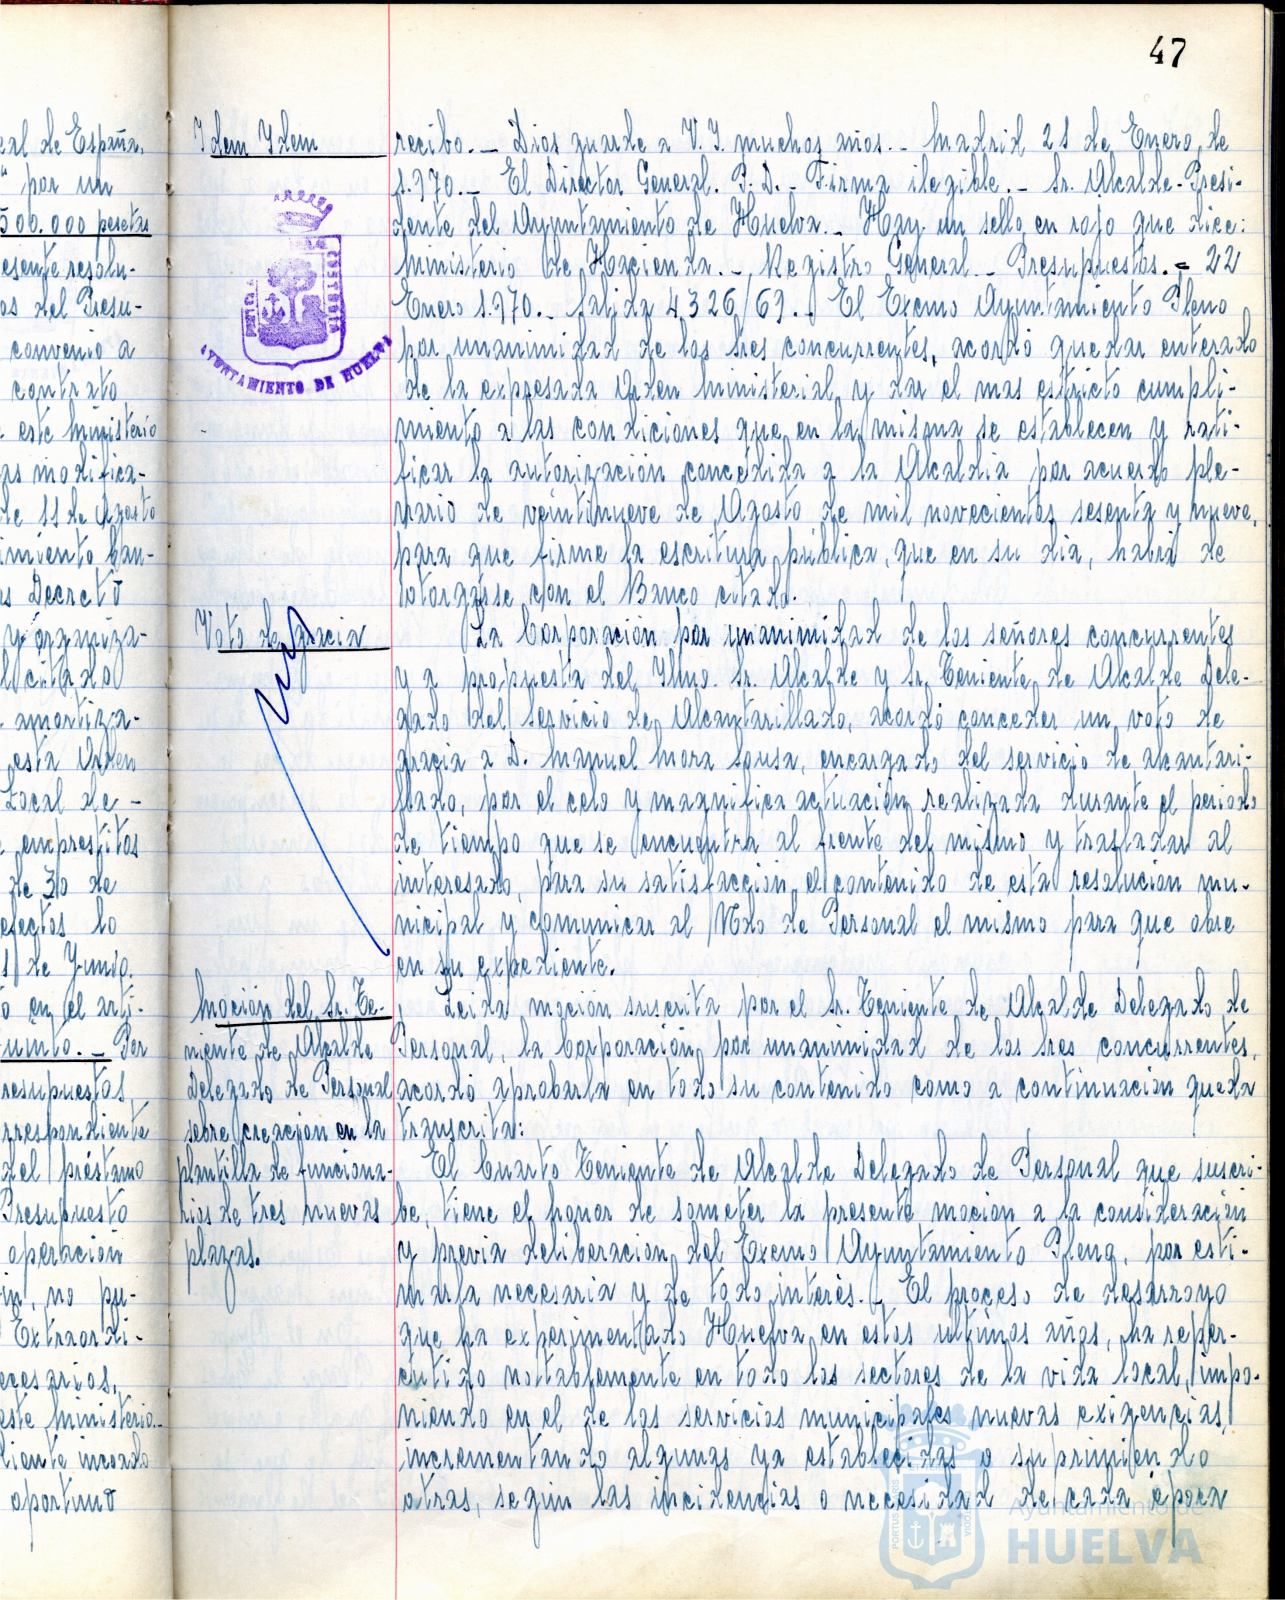 47
eal de España,
" por un
500.000 pesetas
esente resolu-
os del Presu-
convenio a
contrato
este Ministerio
as modifica-
de 11 de Agosto
imiento ban-
as Decreto
y organiza-
l citado
amortiza-
esta Orden
Local de -
empréstitos
de 30 de
efectos lo
de Junio.
o en el artí-
unto. - Por
resupuestos,
rrespondiente
del préstamo
Presupuesto
operación
in, no pu-
Extraordi-
ecesarios,
este Ministerio.-
diente incoado
oportuno
Idem Idem
AYUNTAMIENTO DE HUELVA
Voto de gracia
Moción del Sr. Te-
niente de Alcalde
Delegado de Personal
sobre creación en la
plantilla de funciona-
rios de tres nuevas
plazas.
recibo.- Dios guarde a V. I. muchos años.- Madrid 21 de Enero de
1.970.- El Director General. P. D.- Firma ilegible.- Sr. Alcalde-Presi-
dente del Ayuntamiento de Huelva.- Hay un sello en rojo que dice:
Ministerio de Hacienda.- Registro General.- Presupuestos.- 22
Enero 1.970.- Salida 4326/69.- El Excmo Ayuntamiento Pleno
por unanimidad de los Sres concurrentes, acordó quedar enterado
de la expresada Orden Ministerial y dar el mas estricto cumpli-
miento a las condiciones que en la misma se establecen y rati-
ficar la autorización concedida a la Alcaldia por acuerdo ple-
nario de veintinueve de Agosto de mil novecientos sesenta y nueve,
para que firme la escritura pública, que en su dia, habrá de
otorgarse con el Banco citado.
La Corporación por unanimidad de los señores concurrentes
y a propuesta del Iltmo. Sr. Alcalde y Sr. Teniente de Alcalde Dele-
gado del Servicio de Alcantarillado, acordó conceder un voto de
gracia a D. Manuel Mora Sousa, encargado del servicio de alcantari-
llado, por el celo y magnífica actuación realizada durante el periodo
de tiempo que se encuentra al frente del mismo y trasladar al
interesado, para su satisfacción, el contenido de esta resolución mu-
nicipal y comunicar al Ndo de Personal el mismo para que obre
en su expediente.
Leida moción suscrita por el Sr. Teniente de Alcalde Delegado de
Personal, la Corporación, por unanimidad de los Sres concurrentes,
acordó aprobarla en todo su contenido como a continuación queda
transcrita:
El Cuarto Teniente de Alcalde Delegado de Personal que suscri-
be, tiene el honor de someter la presente moción a la consideración
y previa deliberación del Excmo Ayuntamiento Pleno, por esti-
marla necesaria y de todo interés.- El proceso de desarroyo
que ha experimentado Huelva, en estos ultimos años, ha reper-
cutido notablemente en todo los sectores de la vida local, impo-
niendo en el de los servicios municipales nuevas exigencias,
incrementando algunas ya establecidas o suprimiendo
otras, según las incidencias o necesidad de cada época
PORTUS MARIS
CUSTODIA
Ayuntamiento de
HUELVA